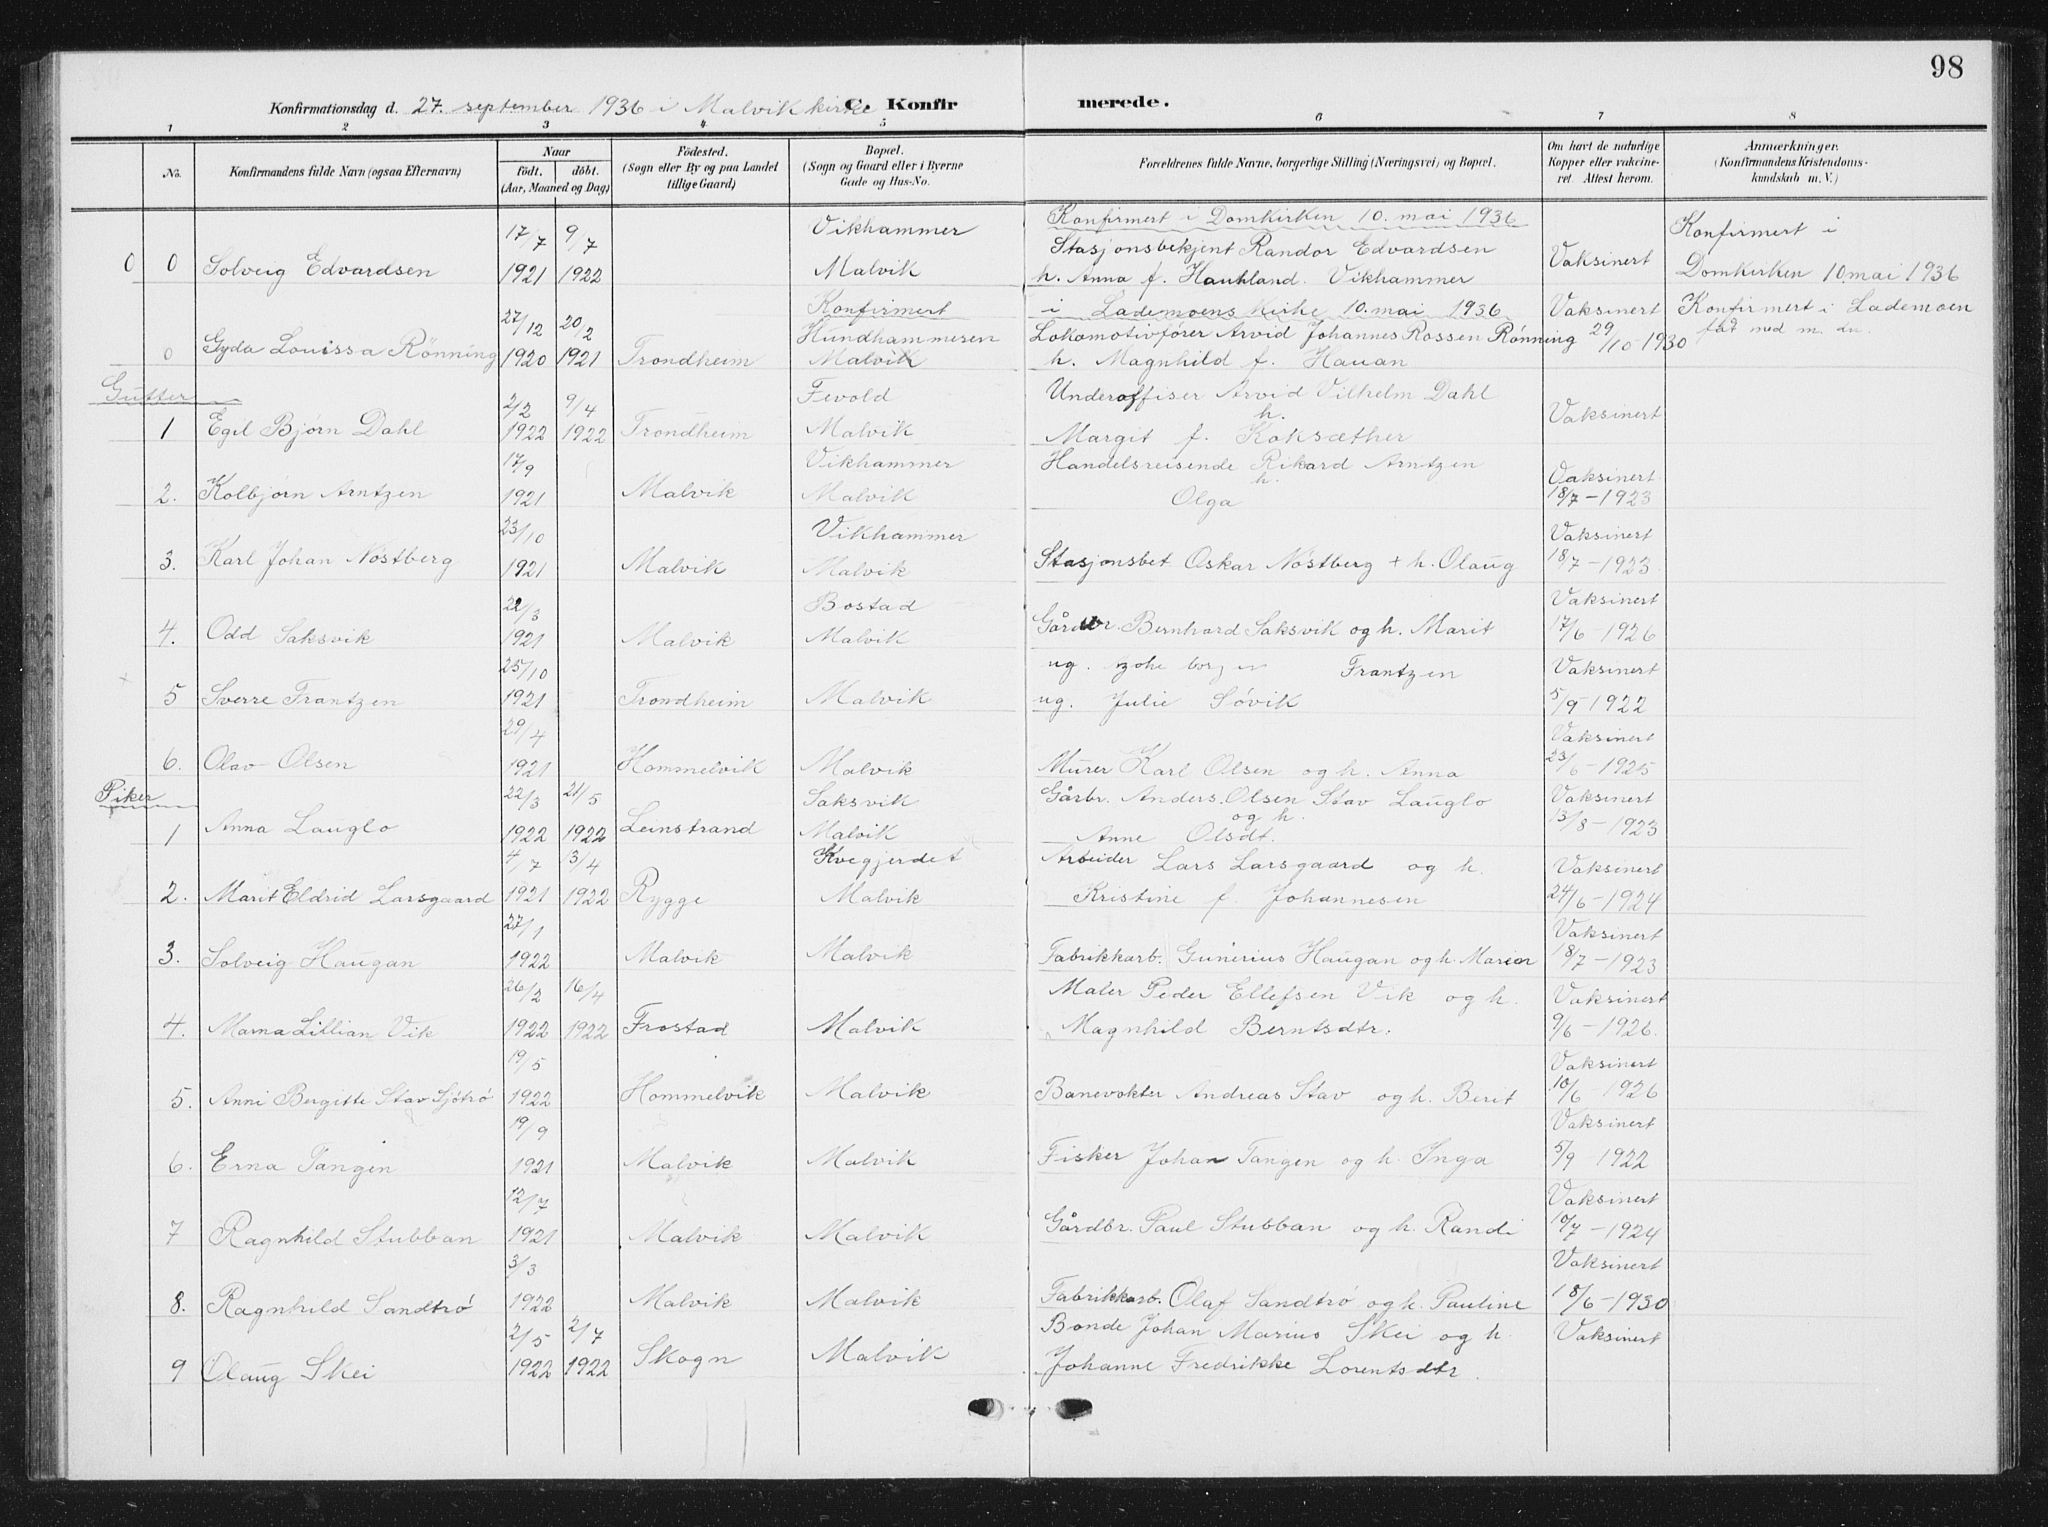 98
Konfirmationsdag d. 27. september 1936 i Malvik kirke C. Konfirmerede.
1 2 3 4 5 6 7 8
No. Konfirmandens fulde Navn (ogsaa Efternavn) Naar födt. döbt. (Aar, Maaned og Dag) Födested. (Sogn eller By og paa Landet tillige Gaard) Bopæl. (Sogn og Gaard eller i Byerne Gade og Hus-No. Forældrenes fulde Navne, borgerlige Stilling (Næringsvei) og Bopæl. Om havt de naturlige Kopper eller vakcineret. Attest herom. Anmærkninger. (Konfirmandens Kristendomskundskab m. V.)
Konfirmert i Domkirken 10. mai 1936
17/7 9/7 Vikhammer Stasjonsbekjent Randor Edvardsen Konfirmert i
0 0 Solveig Edvardsen 1921 1922 Malvik h. Anna f. Haukland. Vikhammer Vaksinert Domkirken 10 mai 1936
Konfirmert i Lademoens Kirke 10. mai 1936 Vaksinert Konfirmert i Lademoen
27/12 20/2 Hundhammeren Lokomotivfører Arvid Johannes Rossen Rønning 29/10-1930
0 Gyda Louissa Rönning 1920 1921 Trondheim Malvik h. Magnhild f. Hauan
Gutter
2/2 9/4 Fevold Underoffiser Arvid Vilhelm Dahl
1 Egil Bjørn Dahl 1922 1922 Trondheim Malvik h. Margit f. Koksæther Vaksinert
17/9 Vikhammer Handelsreisende Rikard Arntzen Vaksinert
2. Kolbjørn Arntzen 1921 Malvik Malvik h. Olga 18/7-1923
23/10 Vikhammer Vaksinert
3. Karl Johan Nøstberg 1921 Malvik Malvik Stasjonsbet Oskar Nøstberg + h. Olaug 18/7-1923
22/3 Bostad Vaksinert
4. Odd Saksvik 1921 Malvik Malvik Gårdbr. Bernhard Saksvik og h. Marit 17/6-1926
25/10 ug. Frantzen Vaksinert
5 Sverre Frantzen 1921 Trondheim Malvik ug. Julie Søvik 5/9-1922
29/4 Vaksinert
6. Olav Olsen 1921 Hommelvik Malvik Murer Karl Olsen og h. Anna 23/6-1925
Piker
22/3 21/5 Saksvik Gårbr. Anders. Olsen Stav Lauglo Vaksinert
1 Anna Lauglo 1922 1922 Leinstrand Malvik og h. Anne Olsdt. 13/8-1923
4/7 13/4 Kvegjerdet Arbeider Lars Larsgaard og h. Vaksinert
2. Marit Eldrid Larsgaard 1921 1922 Rygge Malvik Kristine f. Johannesen 24/6-1924
27/1 Vaksinert
3. Solveig Haugan 1922 Malvik Malvik Fabrikkarb. Gunerius Haugan og h. Marian 18/7-1923
26/2 16/4 Maler Peder Ellefsen Vik og h. Vaksinert
4. Marna Lillian Vik 1922 1922 Frostad Malvik Magnhild Berntsdtr. 9/6-1926.
19/5 Vaksinert
5. Anni Bergitte Stav Sjötrø 1922 Hommelvik Malvik Banevokter Andreas Stav og h. Berit 10/6 1926
19/9 Vaksinert
6. Erna Tangen 1921 Malvik Malvik Fisker Johan Tangen og h. Inga 5/9 1922
12/7 Vaksinert
7 Ragnhild Stubban 1921 Malvik Malvik Gårdbr. Paul Stubban og h. Randi 10/7-1924
3/3 Vaksinert
8. Ragnhild Sandtrø 1922 Malvik Malvik Fabrikkarb. Olaf Sandtrø og h. Pauline 18/6-1930
2/5 2/7 Bonde Johan Marius Skei og h. Vaksinert
9 Olaug Skei 1922 1922 Skogn Malvik Johanne Fredrikke Lorentsdtr.